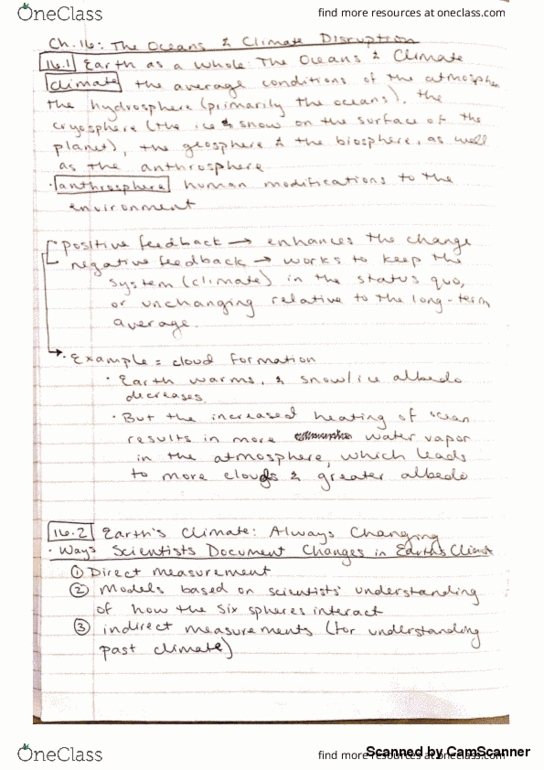 OneClass
find more resources at oneclass.com
Ch. 16: The Oceans & Climate Disruption
16.1 Earth as a whole: The Oceans & Climate
climate the average conditions of the atmosphere
the hydrosphere (primarily the oceans), the
cryosphere (the ice & snow on the surface of the
planet), the geosphere & the biosphere, as well
as the anthrosphere
· anthrosphere human modifications to the
environment
positive feedback → enhances the change
negative feedback → works to keep the
system (climate) in the status quo,
or unchanging relative to the long-term
average.
· Example = cloud formation
· Earth warms, & snow/ice albedo
decreases.
· But the increased heating of ocean
results in more water vapor
in the atmosphere, which leads
to more clouds & greater albedo
16.2 Earth's Climate: Always Changing
· Ways Scientists Document Changes in Earth's Climate
① Direct measurement
② Models based on scientists' understanding
of how the six spheres interact
③ indirect measurements (for understanding
past climate)
OneClass
find more resources at oneclass.com
Scanned by CamScanner